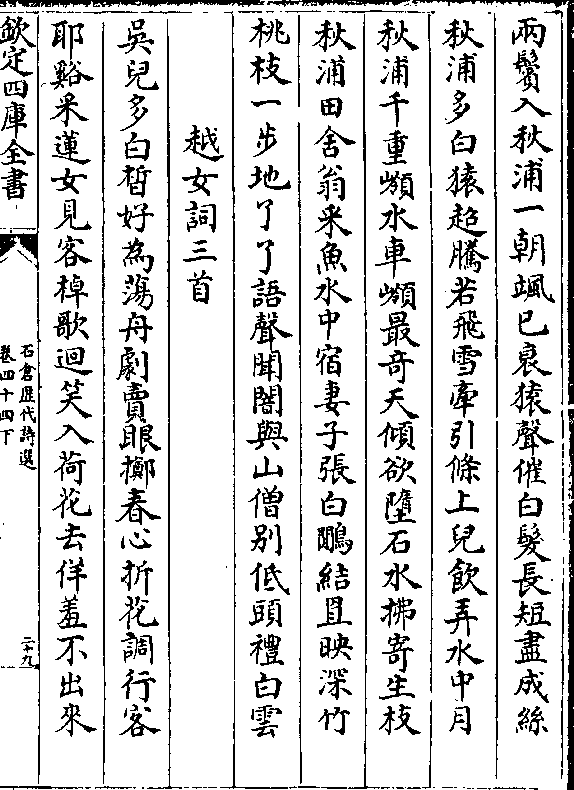 兩鬢入秋浦一朝颯已衰猿聲催白髮長短盡成絲
秋浦多白猿超騰若飛雪牽引條上兒飲弄水中月
秋浦千重嶺水車嶺最奇天傾欲墮石水拂寄生枝
秋浦田舍翁采魚水中宿妻子張白鷴結罝映深竹
桃枝一步地了了語聲聞闇與山僧別低頭禮白雲
越女詞三首
吳兒多白皙好為蕩舟劇賣眼擲春心折花調行客
耶谿采蓮女見客棹歌迴笑入荷花去佯羞不出來
欽定四庫全書
石倉歷代詩選
卷四十四下
二十九